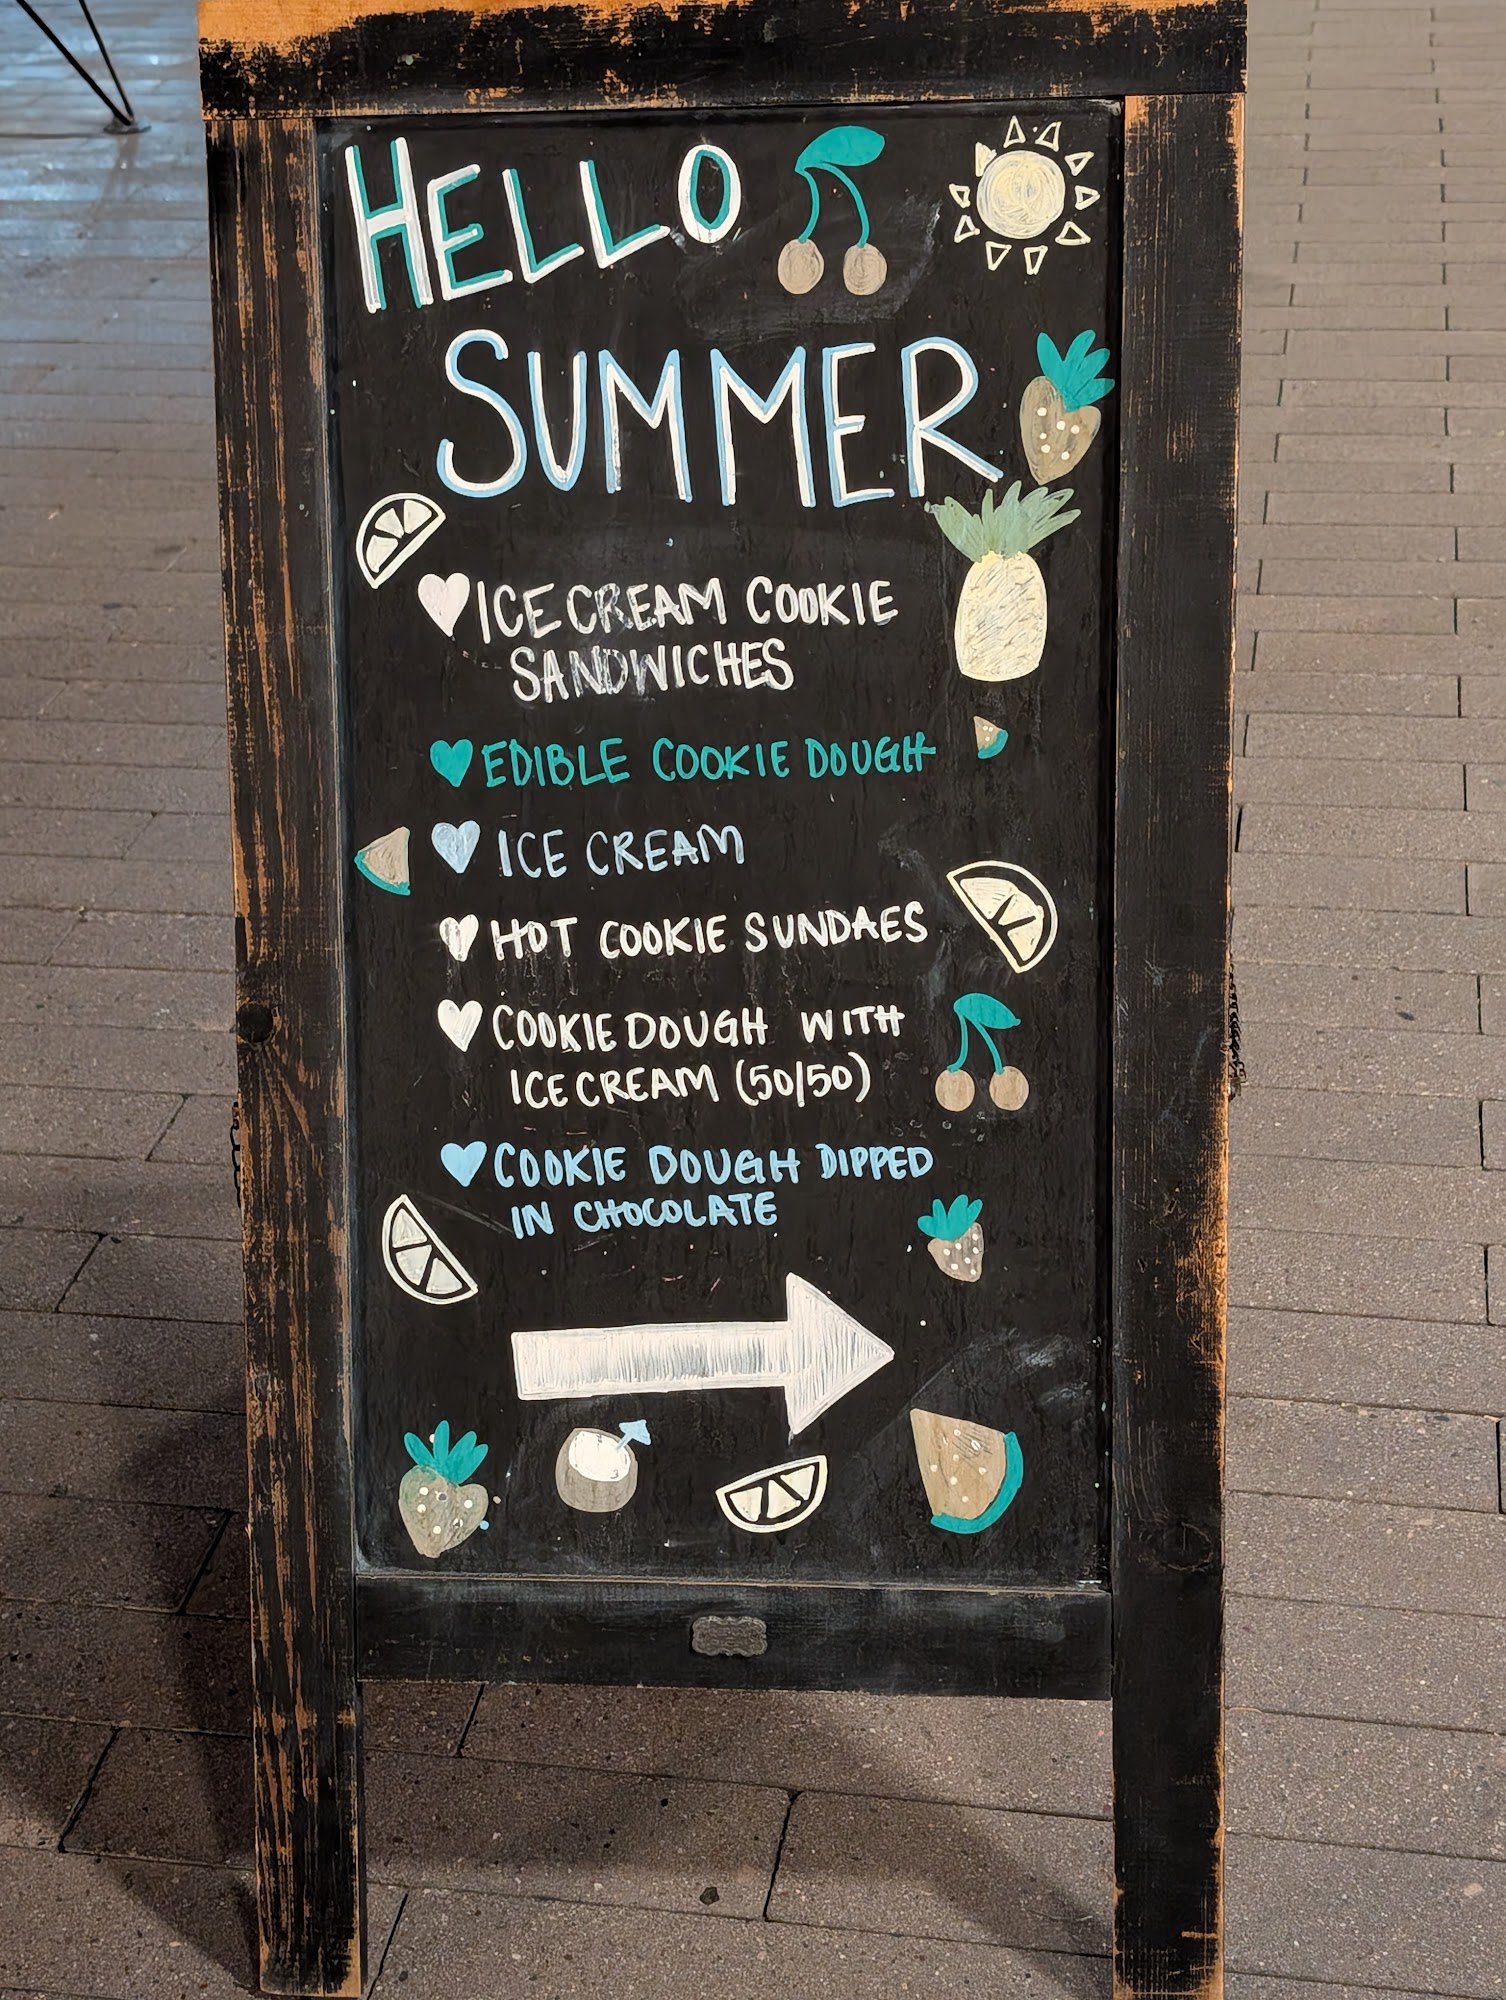 HELLO
SUMMER
ICE CREAM COOKIE
SANDWICHES
EDIBLE COOKIE DOUGH
ICE CREAM
HOT COOKIE SUNDAES
COOKIE DOUGH WITH
ICE CREAM (50/50)
COOKIE DOUGH DIPPED
IN CHOCOLATE